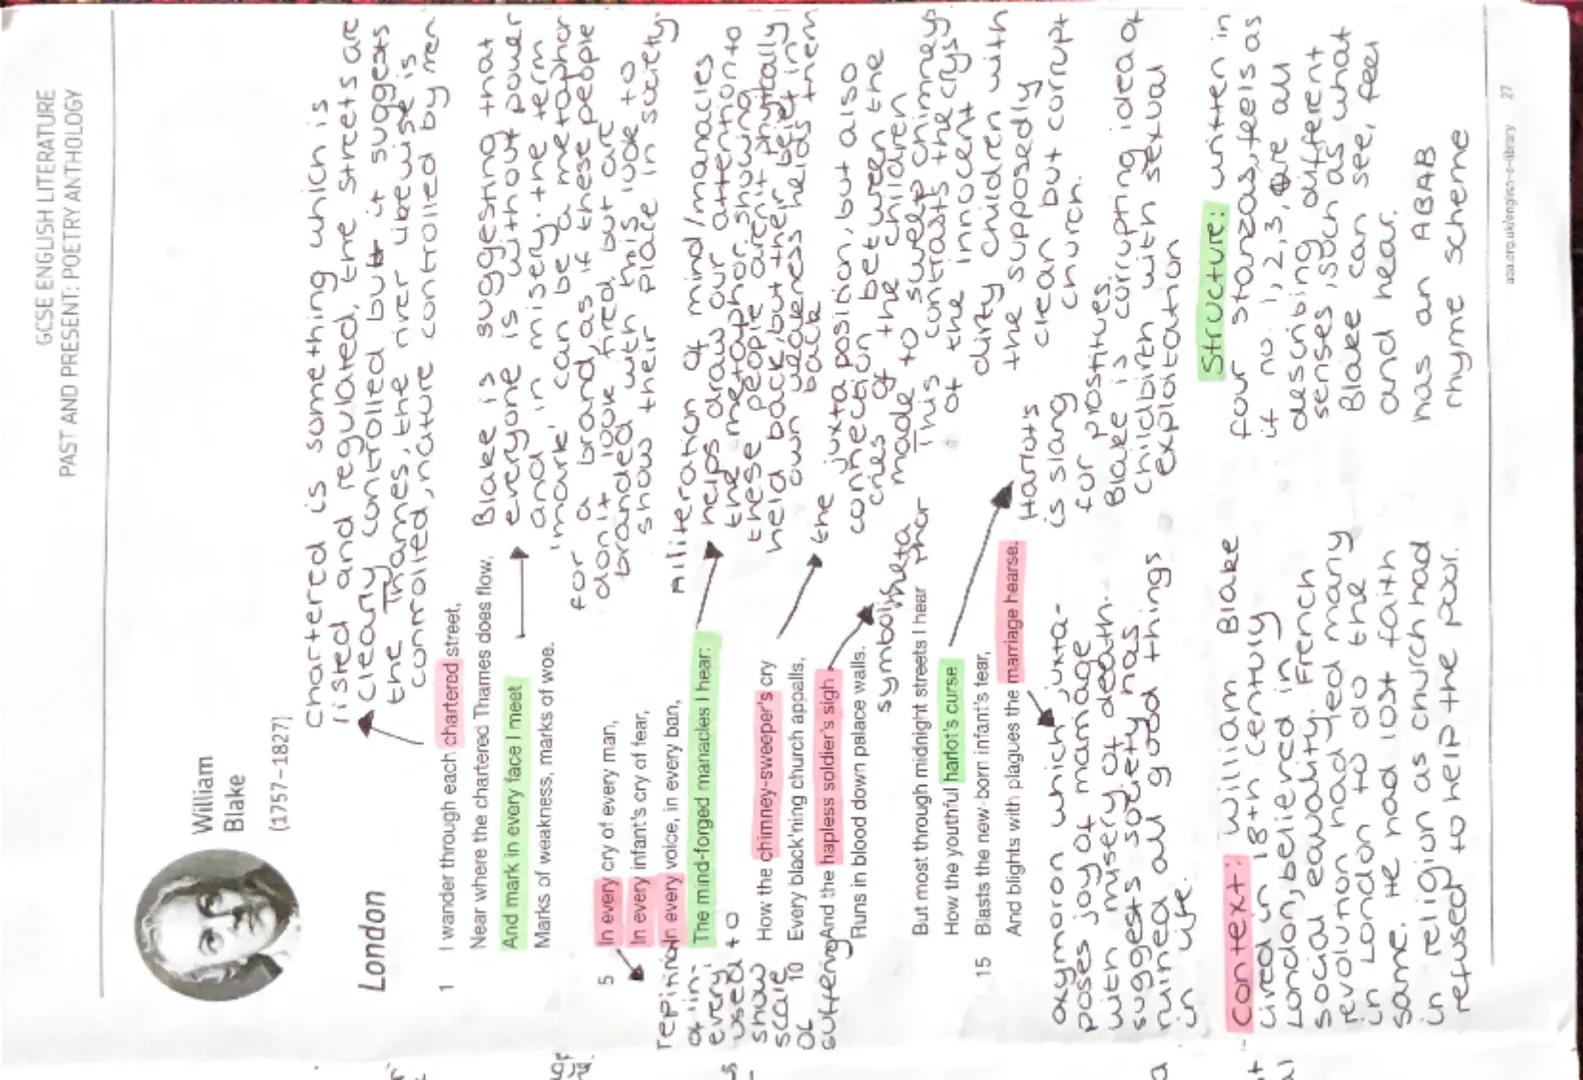 GCSE ENGLISH LITERATURE
PAST AND PRESENT: POETRY ANTHOLOGY
William
Blake
(1757–1827)
London
chartered is something which is
listed and regulated, the streets are
cleary controlled but it suggests
the Thames, the river likewise is
controlled, nature controlled by men
1 I wander through each chartered street,
Near where the chartered Thames does flow,
And mark in every face I meet
Marks of weakness, marks of woe.
Blake is suggesting that
everyone is without power
and in misery. the term
'mark' can be a metaphor
for a brand, as if these people
don't look tired, but are
branded with this look to
show their place in society.
5 In every cry of every man,
In every infant's cry of fear,
In every voice, in every ban,
The mind-forged manacles I hear:
Alliteration of mind/manacles
helps draw our attention to
the metaphor showing
these people aren't physically
held back, but their belief in
own weakness holds them
back
of in-
every;
used to
show
scale
of
suffering
How the chimney-sweeper's cry
10 Every black'ning church appalls,
And the hapless soldier's sigh
Runs in blood down palace walls.
the juxtaposition, but also
connection between the
cries of the children
made to sweep chimneys
This contrasts the crys
of the innocent
dirty children with
the supposedly
clean but corrupt
church.
symbolic
meta
phor
But most through midnight streets I hear
How the youthful harlot's curse
15 Blasts the new-born infant's tear,
And blights with plagues the marriage hearse.
Harlots
is slang
for prostitues
Blake is corrupting idea of
childbirth with sexual
exploitation
oxymoron which juxta-
poses joy of marriage
with misery of death.
suggests society has
ruined all good things
in life.
Context: William Blake
lived in 18th century
London, believed in
social equality. French
revolution had led many
in London to do the
same. He had lost faith
in religion as church had
refused to help the poor.
Structure: written in
four stanzas, feels as
if no 1, 2, 3, are all
describing different
senses, such as what
Blake can see, feel
and hear.
has an ABAB
rhyme scheme
aqa.org.uk/english-e-library 27